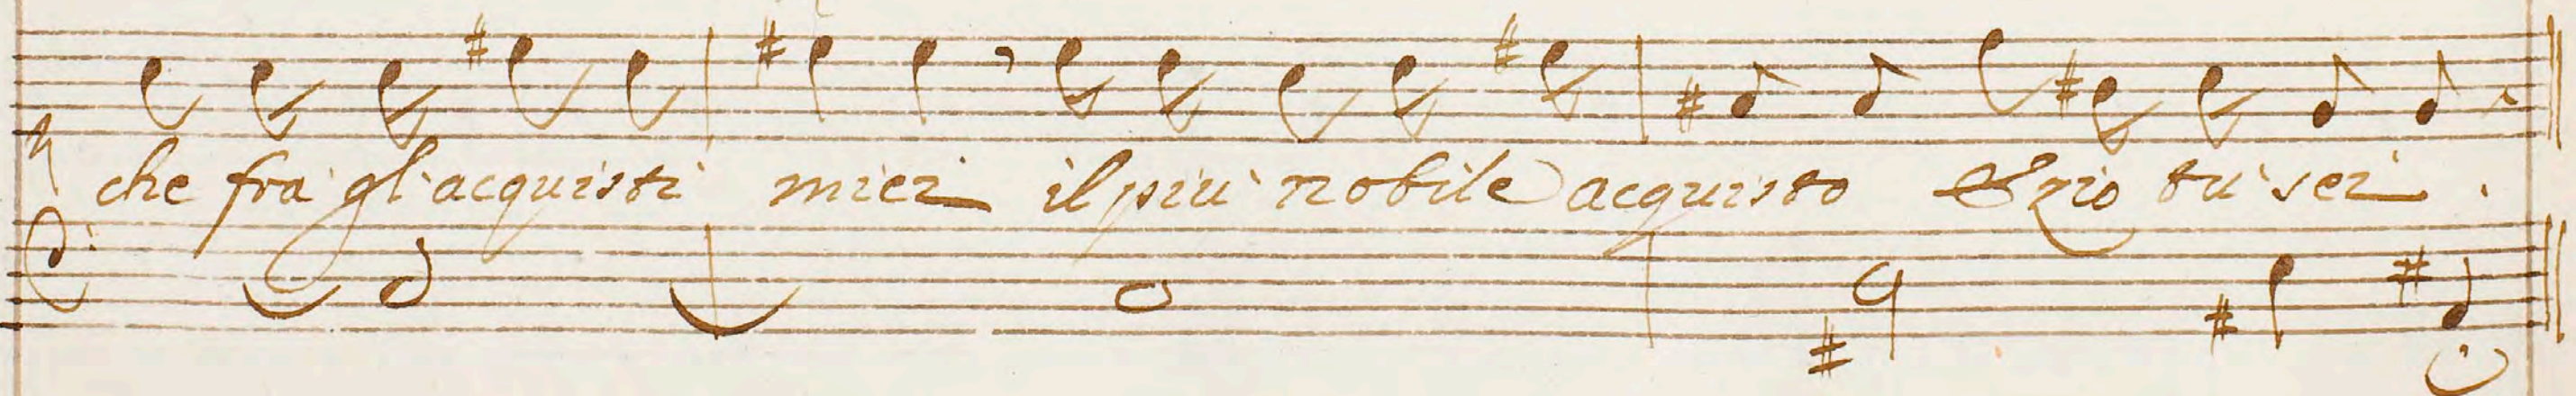 che fra gl'acquisti miei il più nobile acquisto Ezio tu sei.